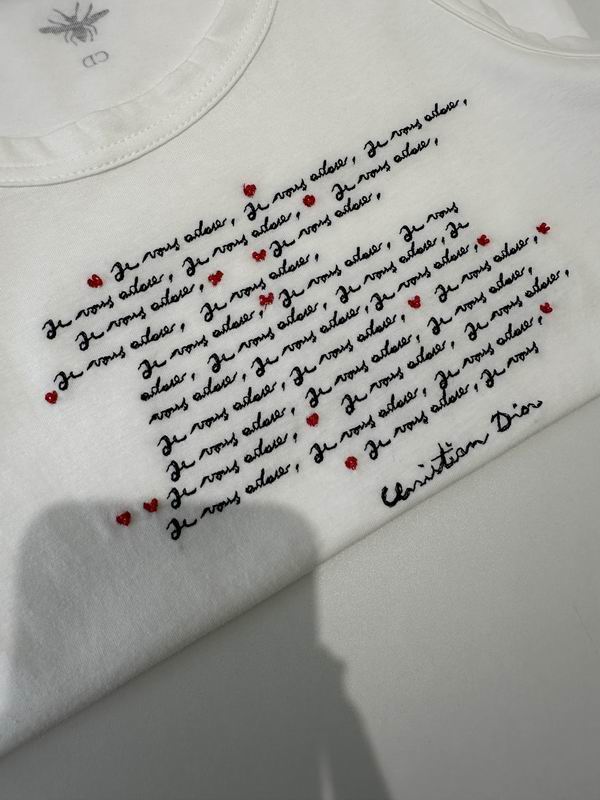 CD
Je vous adore, Je vous adore, Je vous adore,
Je vous adore, Je vous adore, Je vous adore,
Je vous adore, Je vous adore,
Je vous adore, Je vous adore,
Je vous adore, Je vous adore, Je vous
adore, Je vous adore, Je vous adore, Je
vous adore, Je vous adore, Je vous adore,
Je vous adore, Je vous adore, Je vous adore,
Je vous adore, Je vous adore, Je vous adore,
Je vous adore, Je vous adore, Je vous adore,
Je vous adore, Je vous adore, Je vous adore,
Je vous adore, Je vous
Christian Dior